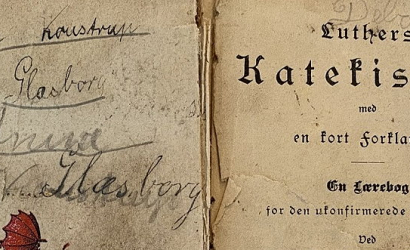 Koustrup
Glasborg
Glasborg
Luthers
Katekis
med
en kort Forkla
En Lærebog
for den ukonfirmerede
Ved